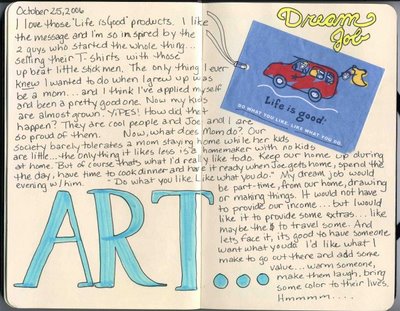 October 25, 2006
I love those "Life is Good" products. I like
the message and I'm so inspired by the
2 guys who started the whole thing...
selling their T-shirts with those
up beat little stick men. The only thing I ever
knew I wanted to do when I grew up was
be a mom... and I think I've applied myself
and been a pretty good one. Now my kids
are almost grown. YIPES! How did that
happen? They are cool people and Joe and I are
so proud of them. Now, what does Mom do? Our
society barely tolerates a mom staying home while her kids
are little... the only thing it likes less is a homemaker with no kids
at home. But of course thats what I'd really like to do. Keep our home up during
the day, have time to cook dinner and have it ready when Joe gets home, spend the
evening w/ him. "Do what you like Like what you do." My dream job would
be part-time, from our home, drawing
or making things. It would not have
to provide our income... but I would
like it to provide some extras... like
maybe the $ to travel some. And
lets face it, its good to have someone
want what you do. I'd like what I
make to go out there and add some
value... warm someone,
make them laugh, bring
some color to their lives.
Hmmmm....
ART...
Dream
Job
Life is good
DO WHAT YOU LIKE. LIKE WHAT YOU DO.